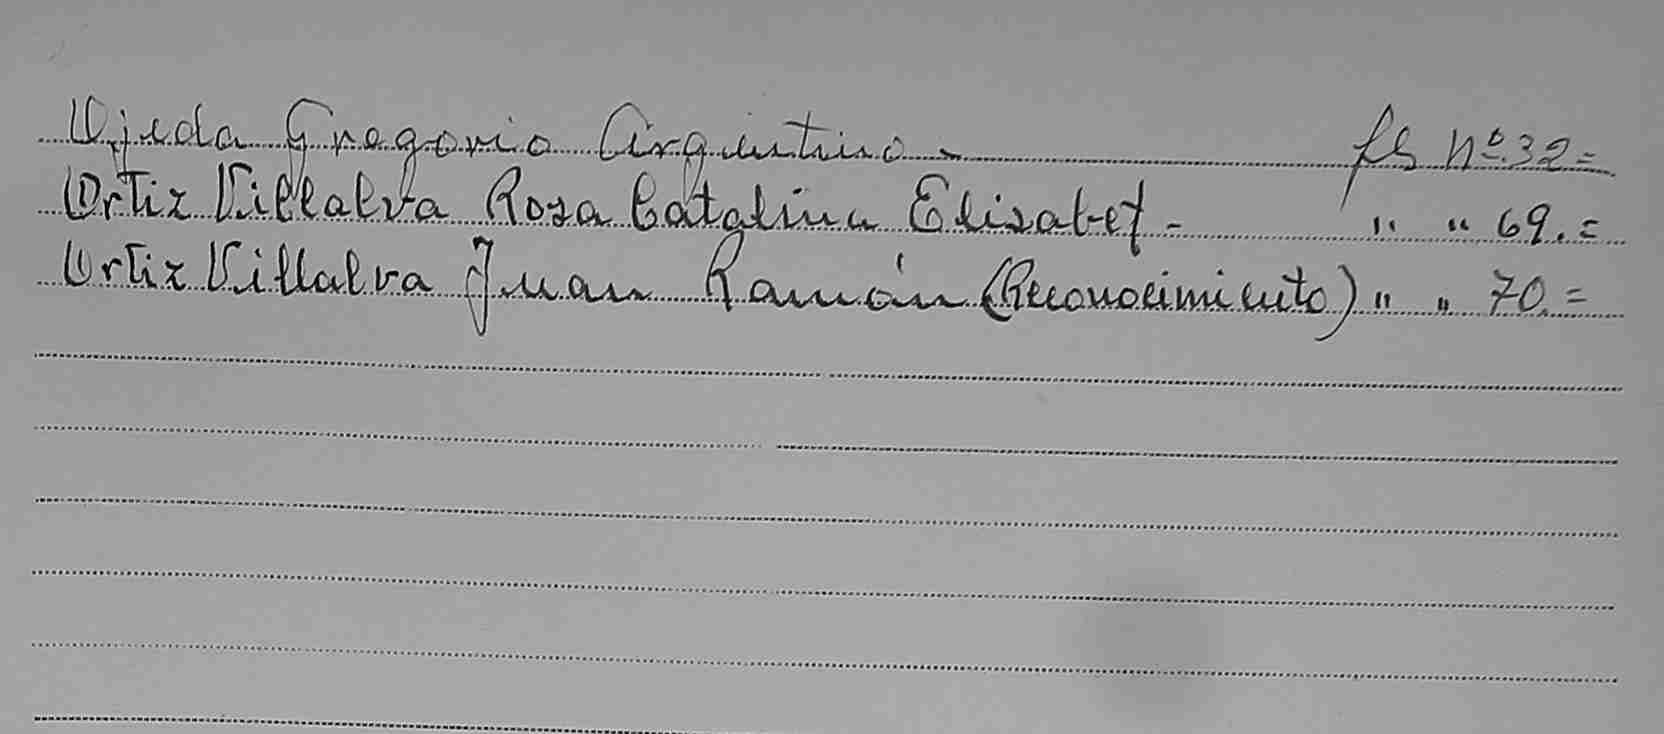 Ojeda Gregorio Argentino - fs Nº 32=
Ortiz Villalva Rosa Catalina Elisabet - " " 69.=
Ortiz Villalva Juan Ramón (Reconocimiento) " " 70.=